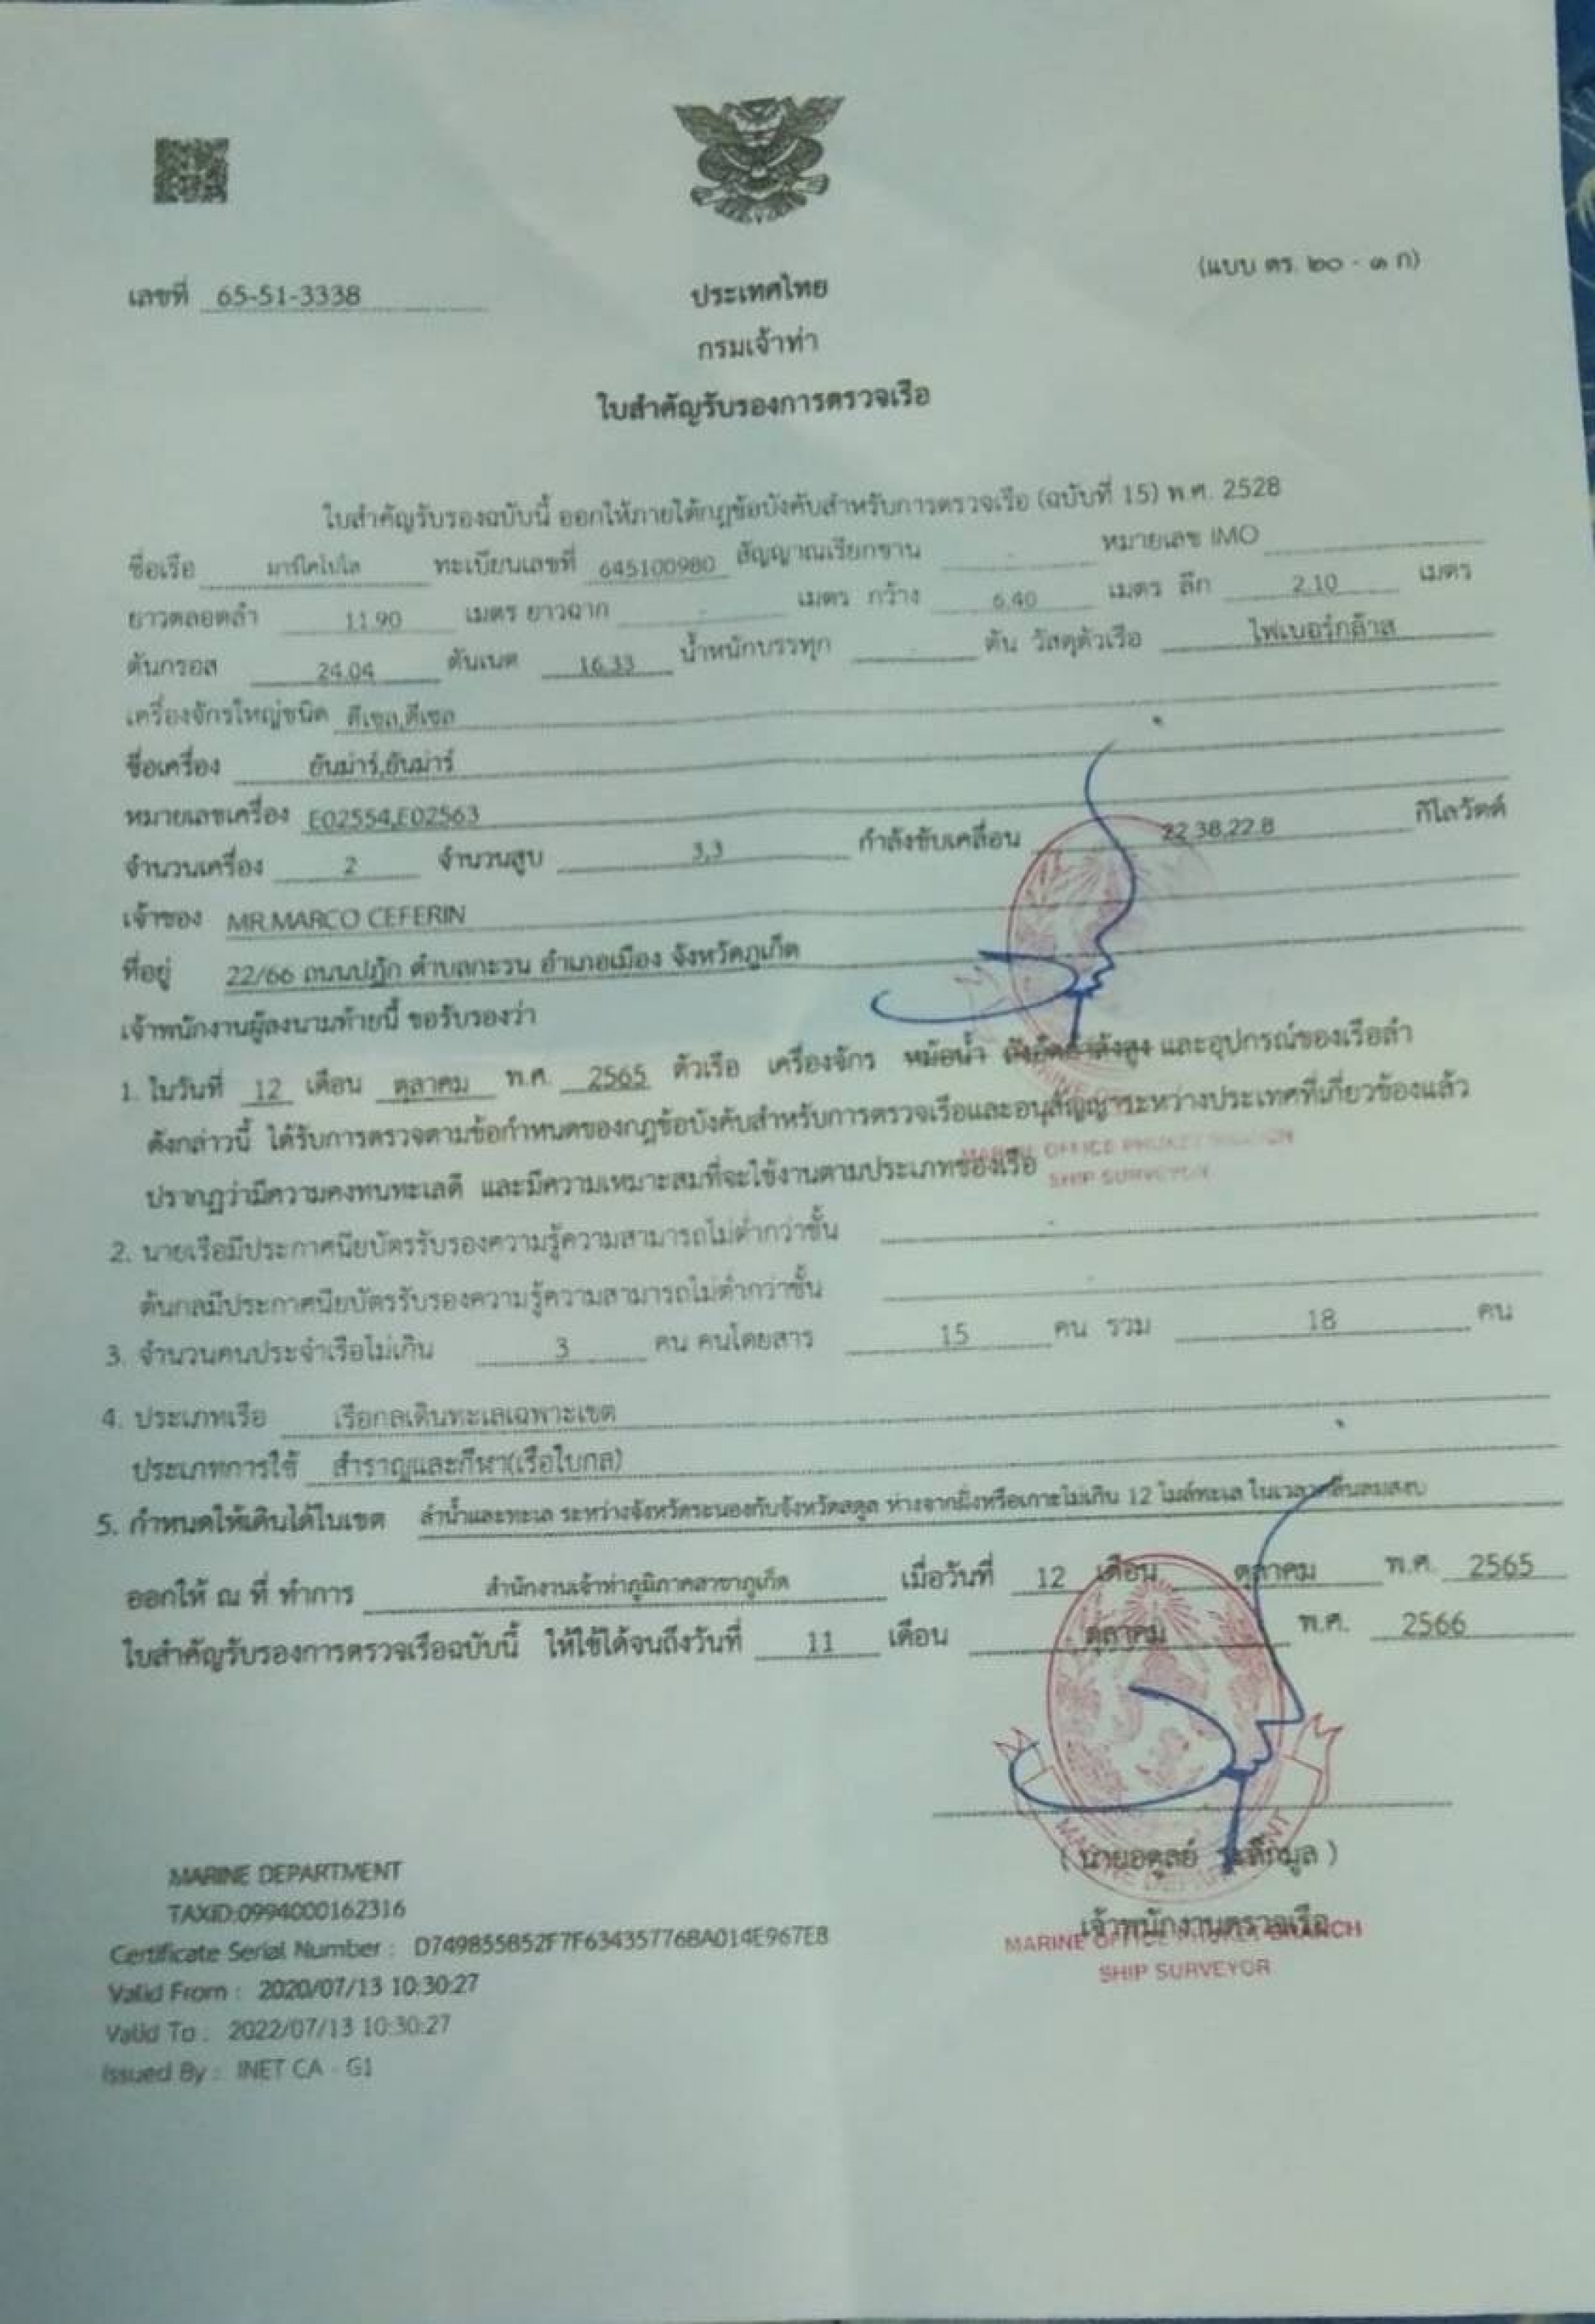 (แบบ ตร. ๒๐ - ๑ ก)
เลขที่ 65-51-3338
ประเทศไทย
กรมเจ้าท่า
ใบสำคัญรับรองการตรวจเรือ
ใบสำคัญรับรองฉบับนี้ ออกให้ภายใต้กฎข้อบังคับสำหรับการตรวจเรือ (ฉบับที่ 15) พ.ศ. 2528
ชื่อเรือ มาร์โคโปโล ทะเบียนเลขที่ 645100980 สัญญาณเรียกขาน - หมายเลข IMO
ยาวตลอดลำ 11.90 เมตร ยาวฉาก - เมตร กว้าง 6.40 เมตร ลึก 2.10 เมตร
ตันกรอส 24.04 ตันเนต 16.33 น้ำหนักบรรทุก - ตัน วัสดุตัวเรือ ไฟเบอร์กล๊าส
เครื่องจักรใหญ่ชนิด ดีเซล,ดีเซล
ชื่อเครื่อง ยันม่าร์,ยันม่าร์
หมายเลขเครื่อง E02554,E02563
จำนวนเครื่อง 2 จำนวนสูบ 3,3 กำลังขับเคลื่อน 22.38,22.8 กิโลวัตต์
เจ้าของ MR.MARCO CEFERIN
ที่อยู่ 22/66 ถนนปฏัก ตำบลกะรน อำเภอเมือง จังหวัดภูเก็ต
เจ้าพนักงานผู้ลงนามท้ายนี้ ขอรับรองว่า
1. ในวันที่ 12 เดือน ตุลาคม พ.ศ. 2565 ตัวเรือ เครื่องจักร หม้อน้ำ ถังอัดกำลังสูง และอุปกรณ์ของเรือลำ
ดังกล่าวนี้ ได้รับการตรวจตามข้อกำหนดของกฎข้อบังคับสำหรับการตรวจเรือและอนุสัญญาระหว่างประเทศที่เกี่ยวข้องแล้ว
ปรากฏว่ามีความคงทนทะเลดี และมีความเหมาะสมที่จะใช้งานตามประเภทของเรือ
MARINE OFFICE PHUKET BRANCH
SHIP SURVEYOR
2. นายเรือมีประกาศนียบัตรรับรองความรู้ความสามารถไม่ต่ำกว่าชั้น -
ต้นกลมีประกาศนียบัตรรับรองความรู้ความสามารถไม่ต่ำกว่าชั้น -
3. จำนวนคนประจำเรือไม่เกิน 3 คน คนโดยสาร 15 คน รวม 18 คน
4. ประเภทเรือ เรือกลเดินทะเลเฉพาะเขต
ประเภทการใช้ สำราญและกีฬา(เรือใบกล)
5. กำหนดให้เดินได้ในเขต ลำน้ำและทะเล ระหว่างจังหวัดระนองกับจังหวัดสตูล ห่างจากฝั่งหรือเกาะไม่เกิน 12 ไมล์ทะเล ในเวลาคลื่นลมสงบ
ออกให้ ณ ที่ ทำการ สำนักงานเจ้าท่าภูมิภาคสาขาภูเก็ต เมื่อวันที่ 12 เดือน ตุลาคม พ.ศ. 2565
ใบสำคัญรับรองการตรวจเรือฉบับนี้ ให้ใช้ได้จนถึงวันที่ 11 เดือน ตุลาคม พ.ศ. 2566
( นายอดุลย์ )
เจ้าพนักงานตรวจเรือ
MARINE DEPARTMENT
MARINE OFFICE PHUKET BRANCH
SHIP SURVEYOR
MARINE DEPARTMENT
TAXID:0994000162316
Certificate Serial Number : D749855852F7F634357768A014E967E8
Valid From : 2020/07/13 10:30:27
Valid To : 2022/07/13 10:30:27
Issued By : INET CA - G1